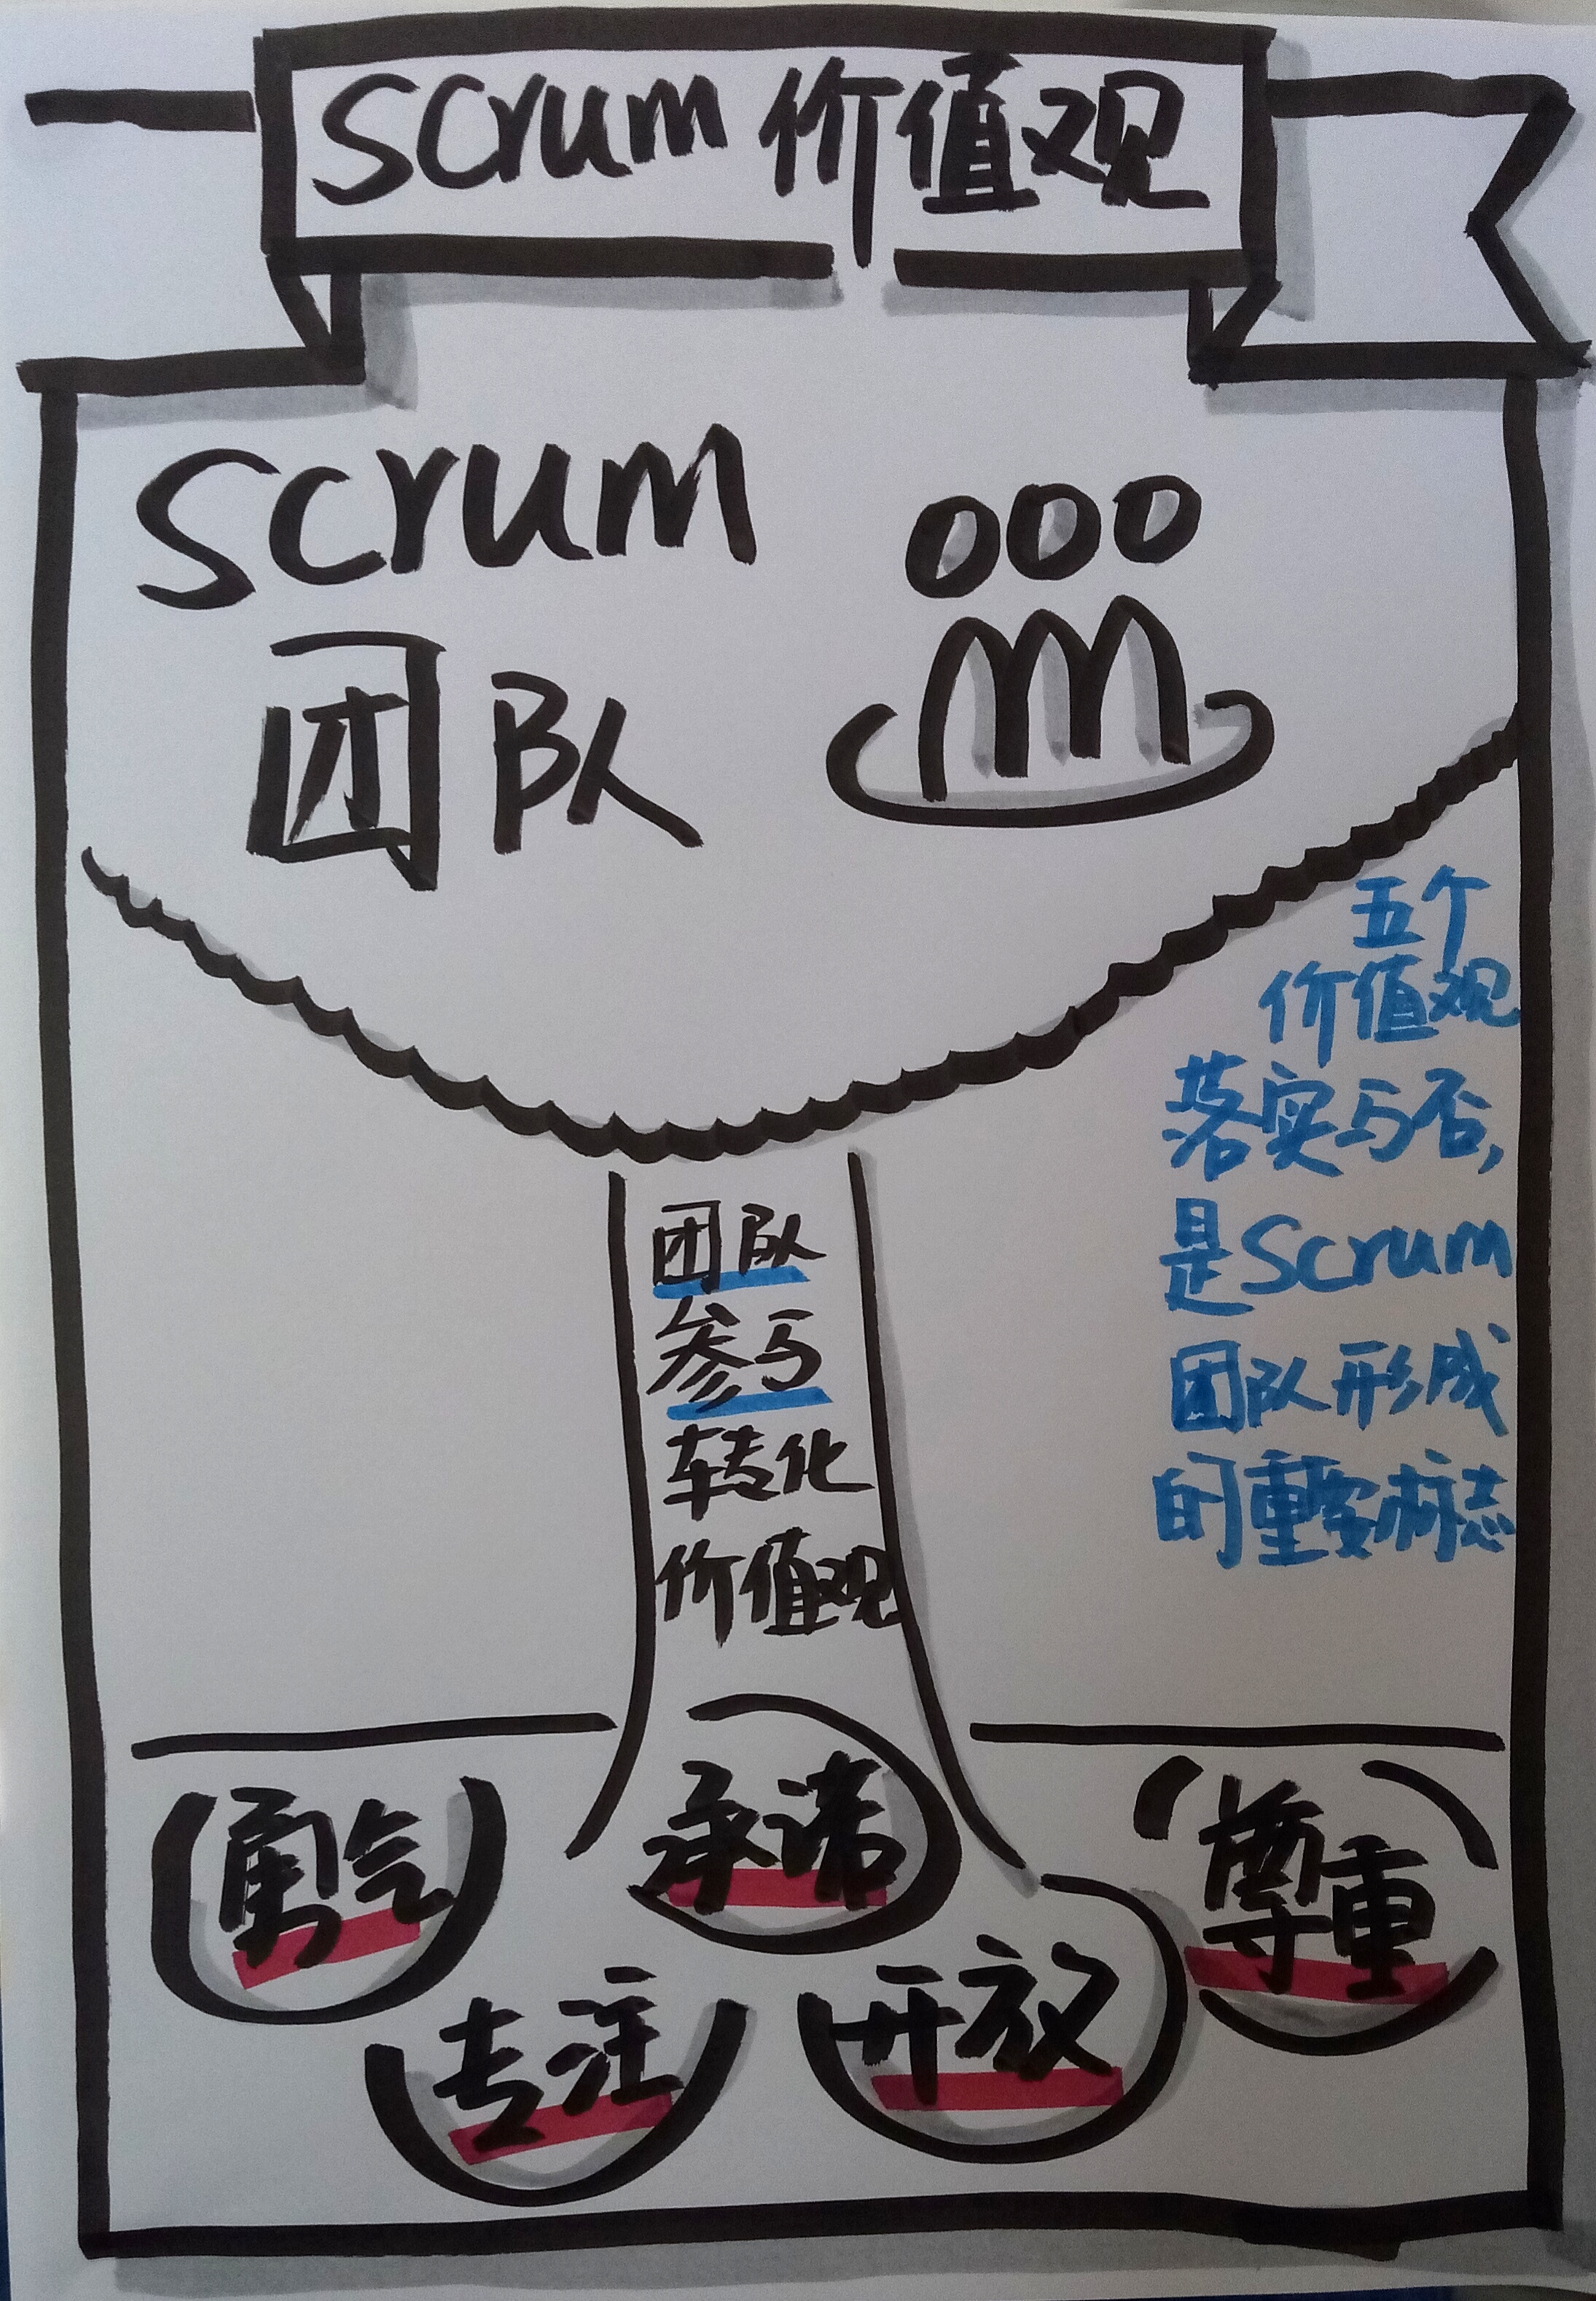 Scrum 价值观
Scrum
团队
五个
价值观
落实与否,
是Scrum
团队形成
的重要标志
团队
参与
转化
价值观
勇气
承诺
尊重
专注
开放